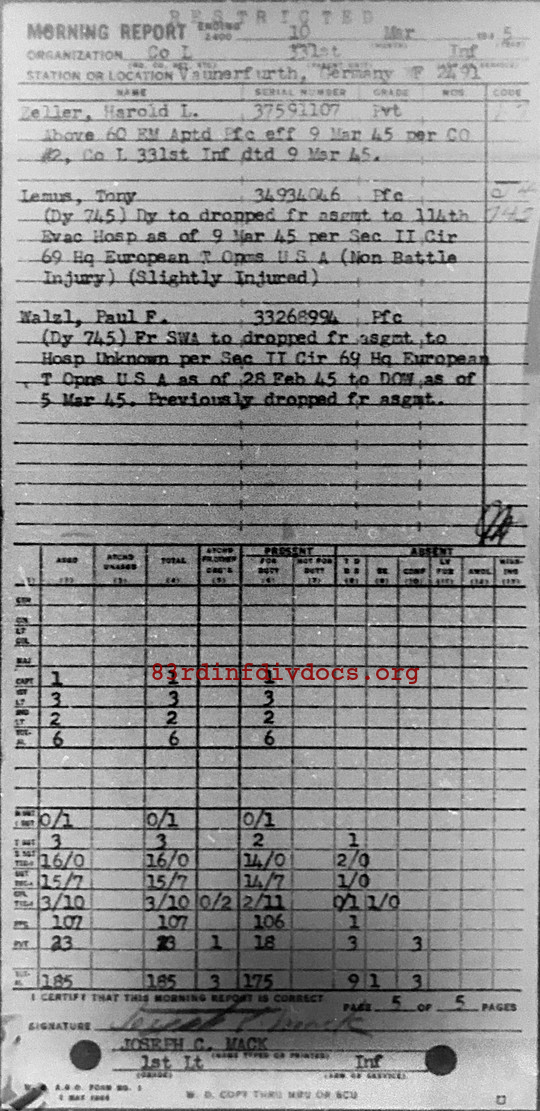 RESTRICTED
MORNING REPORT ENDING 2400 10 Mar 194 5
ORGANIZATION Co L 331st Inf
STATION OR LOCATION Vaunerfurth, Germany VF 2491
NAME SERIAL NUMBER GRADE MOS CODE
Zeller, Harold L. 37591107 Pvt
Above 60 EM Aptd Pfc eff 9 Mar 45 per CO
#2, Co L 331st Inf dtd 9 Mar 45.
Lemus, Tony 34934046 Pfc
(Dy 745) Dy to dropped fr asgmt to 114th
Evac Hosp as of 9 Mar 45 per Sec II Cir
69 Hq European T Opns U S A (Non Battle
Injury) (Slightly Injured)
Walzl, Paul F. 33268994 Pfc
(Dy 745) Fr SWA to dropped fr asgmt to
Hosp Unknown per Sec II Cir 69 Hq European
T Opns U S A as of 28 Feb 45 to DOW as of
5 Mar 45. Previously dropped fr asgmt.
PRESENT ABSENT
ASGD ATCHD UNASGD TOTAL ATCHD FR OTHER ORG'S FOR DUTY NOT FOR DUTY T D D S SK CONF LV FUR AWOL MISSING
83rdinfdivdocs.org
CAPT 1 1 1
1ST LT 3 3 3
2ND LT 2 2 2
TOTAL 6 6 6
0/1 0/1 0/1
T SGT 3 3 2 1
16/0 16/0 14/0 2/0
15/7 15/7 14/7 1/0
3/10 3/10 0/2 2/11 0/1 1/0
PFC 107 107 106 1
PVT 23 23 1 18 3 3
185 185 3 175 9 1 3
I CERTIFY THAT THIS MORNING REPORT IS CORRECT PAGE 5 OF 5 PAGES
SIGNATURE Joseph C Mack
JOSEPH C. MACK
(NAME TYPED OR PRINTED)
1st Lt Inf
(GRADE) (ARM OR SERVICE)
W. D. A.G.O. FORM NO. 1
W. D. COPY THRU MRU OR SCU